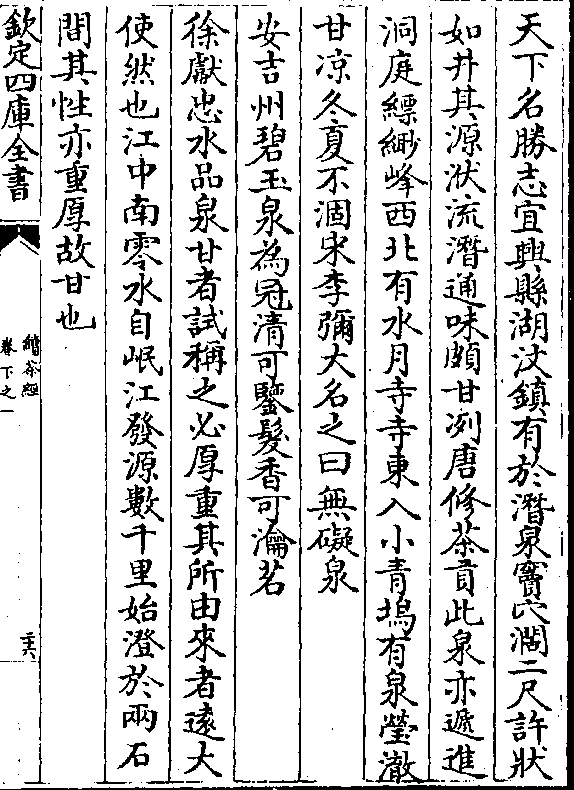 天下名勝志宜興縣湖㳇鎮有於潛泉竇穴濶二尺許狀
如井其源洑流潛通味頗甘冽唐修茶貢此泉亦遞進
洞庭縹緲峰西北有水月寺寺東入小青塢有泉瑩澈
甘凉冬夏不涸宋李彌大名之曰無礙泉
安吉州碧玉泉為冠清可鑒髮香可瀹茗
徐獻忠水品泉甘者試稱之必厚重其所由來者遠大
使然也江中南零水自岷江發源數千里始澄於兩石
間其性亦重厚故甘也
欽定四庫全書
續茶經
卷下之一
三六